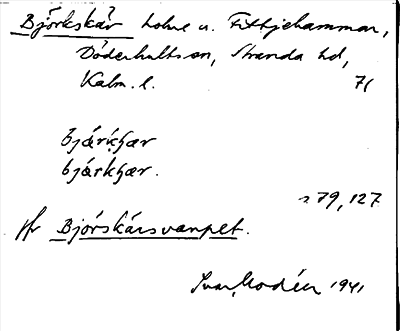 Björkskär holme u. Fittjehammar,
Döderhults sn, Stranda hd,
Kalm. l. 71
bjärkʂær
bjärkʂær.
s 79, 127
Jfr Björskärsvarpet.
Ivar Modéer 1941